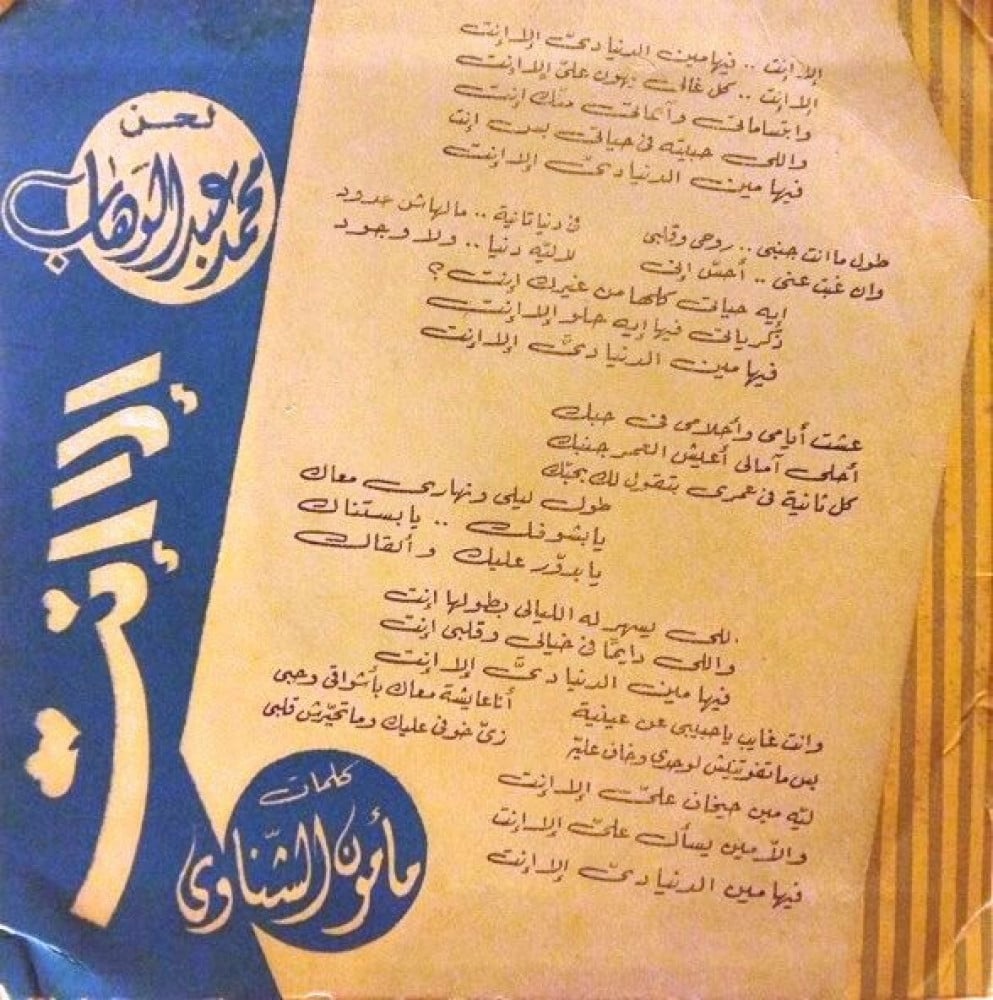 إلا إنت .. فيها مين الدنيا ديّ إلا إنت
إلا إنت .. كل غالى يهون علىّ إلا إنت
وابتساماتى وآهاتى منك إنت
واللى حبيته فى حياتى بس إنت
فيها مين الدنيا ديّ إلا إنت
طول ما انت جنبى .. روحى وقلبى فى دنيا تانية .. مالهاش حدود
وان غبت عنى .. أحسّ إنى لا ليّه دنيا .. ولا وجود
إيه حياتى كلها من غيرك إنت ؟
ذكرياتى فيها إيه حلو إلا إنت
فيها مين الدنيا ديّ إلا إنت
عشت أيامى وأحلامى فى حبك
أحلى آمالى أعيش العمر جنبك
كل ثانية فى عمرى بتقول لك بحبّك
طول ليلى ونهارى معاك
يا بشوفك .. يا بستناك
يا بدوّر عليك وألقاك
للى يسهر له الليالى بطولها إنت
واللى دايمًا فى خيالى وقلبى إنت
فيها مين الدنيا ديّ إلا إنت
وانت غايب يا حبيبى عن عينية أنا عايشة معاك بأشواقى وحبى
بس ما تفوتنيش لوحدى وخاف عليّه زىّ خوفى عليك وما تحيّرش قلبى
ليّه مين حيخاف علىّ إلا إنت
والاّ مين يسأل علىّ إلا إنت
فيها مين الدنيا ديّ إلا إنت
لحن
محمد عبد الوهاب
إلا إنت
كلمات
مأمون الشّناوي